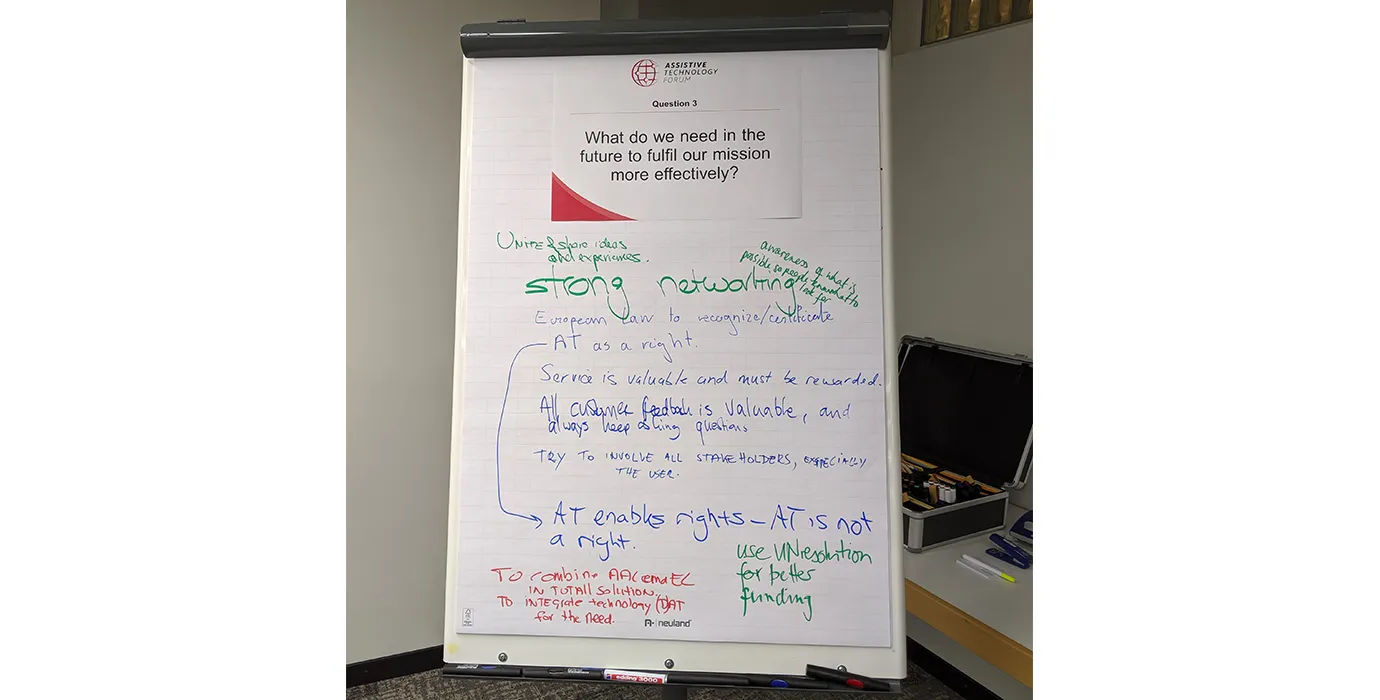 ASSISTIVE
TECHNOLOGY
FORUM
Question 3
What do we need in the
future to fulfil our mission
more effectively?
UNITE & share ideas
and experiences.
awareness of what is
possible so people know what to
look for
strong networking
European Law to recognize/certificate
AT as a right.
Service is valuable and must be rewarded.
All customer feedback is valuable, and
always keep asking questions
TRY TO INVOLVE ALL STAKEHOLDERS, ESPECIALLY
THE USER.
AT enables rights - AT is not
a right.
use UN resolution
for better
funding
TO combine AAC and EC
IN TOTALL SOLUTION.
TO INTEGRATE technology AT
for the need.
neuland
edding 3000